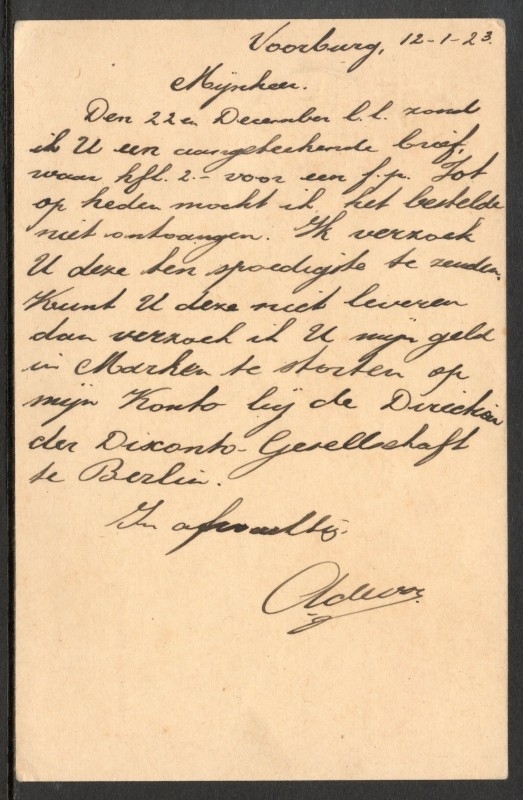 Voorburg, 12-1-23.
Mijnheer.
Den 22en December l.l. zond
ik U een aangeteekende brief,
waar hfl. 2.- voor een f.p. Tot
op heden mocht ik het bestelde
niet ontvangen. Ik verzoek
U deze ten spoedigste te zenden.
Kunt U deze niet leveren
dan verzoek ik U mijn geld
in Marken te storten op
mijn Konto bij de Direction
der Diskonto-Gesellschaft
te Berlin.
In afwachtig